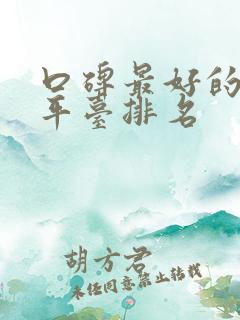 口碑最好的
平台排名
胡方君
未经同意禁止转载